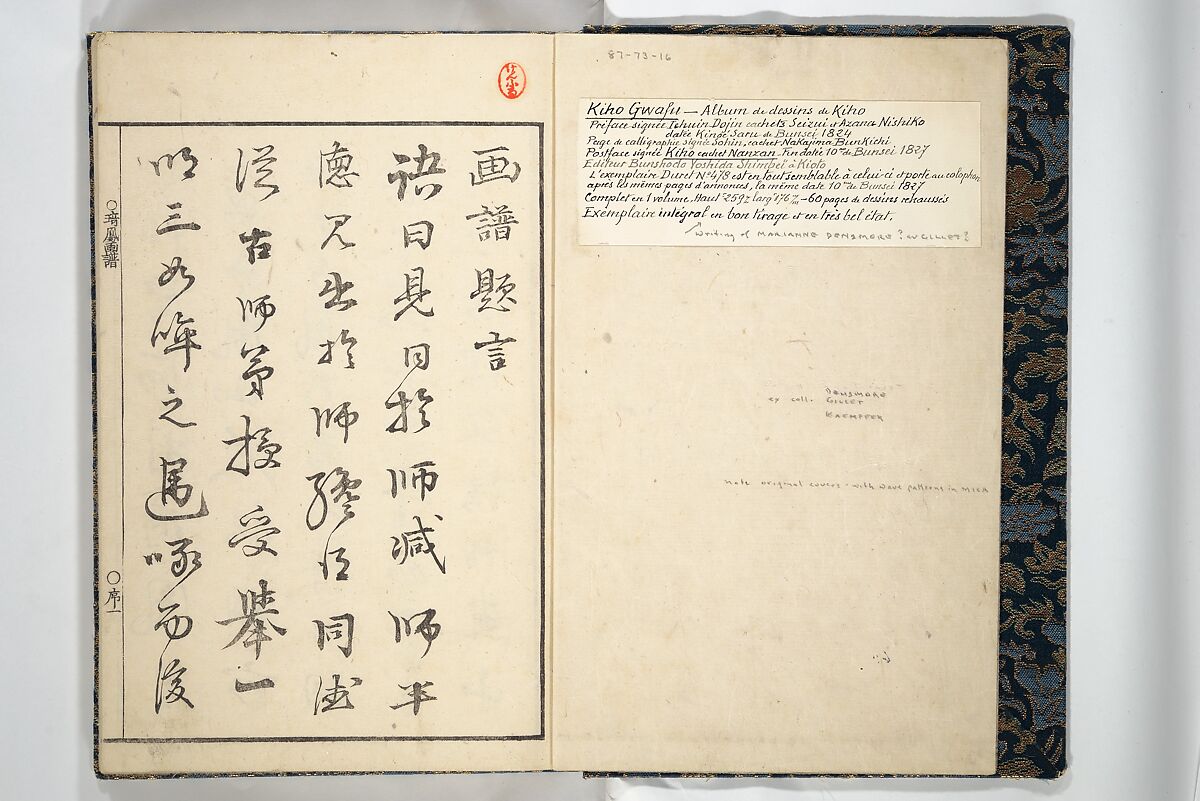 87-73-16
Kiho Gwafu — Album de dessins de Kiho
Préface signée Ichuin Dojin cachets Seizui et Azana Nishiko
datée Kinoe Saru de Bunsei 1824
Page de calligraphie signée Sohin, cachet Nakajima Bunkichi
Postface signée Kiho cachet Nanzan - Fin datée 10me de Bunsei 1827
Editeur Bunshodo Yoshida Shimbei à Kioto
L'exemplaire Duret No 478 est en tout semblable à celui-ci et porte au colophon,
après les mêmes pages d'annonces, la même date 10me du Bunsei 1827
Complet en 1 volume, Haut 259 larg 176 m/m — 60 pages de dessins rehaussés
Exemplaire intégral en bon tirage et en très bel état.
writing of MARIANNE DENSMORE? or GILLET?
DENSMORE
ex coll. GILLET
KAEMPFER
note original covers - with wave patterns in MICA
画譜題言
語曰見同於師減師半
徳見出於師纔同師
従古師弟授受挙一
明三如啐之遇啄而後
○琦鳳画譜
○序一